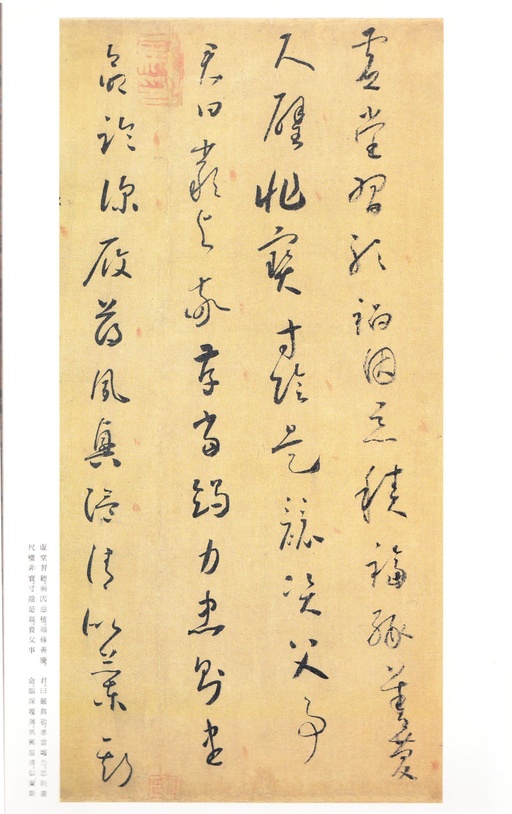 虛堂習聽禍因惡積福緣善慶
尺璧非寶寸陰是競資父事
君曰嚴與敬孝當竭力忠則盡
命臨深履薄夙興溫凊似蘭斯
虛堂習聽禍因惡積福緣善慶 君曰嚴與敬孝當竭力忠則盡
尺璧非寶寸陰是競資父事 命臨深履薄夙興溫凊似蘭斯